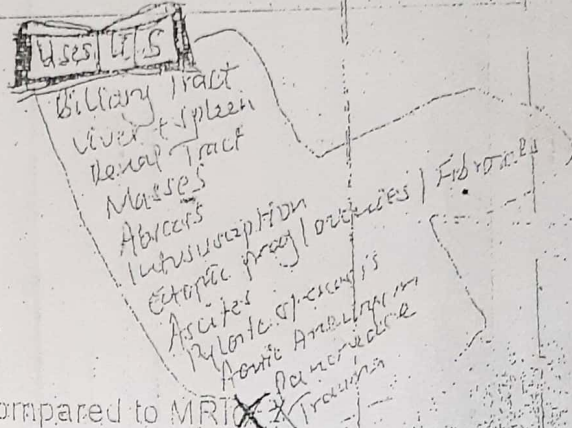 Uses U/S
Billiary Tract
Liver + spleen
Renal Tract
Masses
Abscess
Intususception
Ectopic preg / ovaries / Fibroids
Ascites
Pyloric stenosis
Aortic Aneurysm
Pancreas
Trauma
ompared to MRI